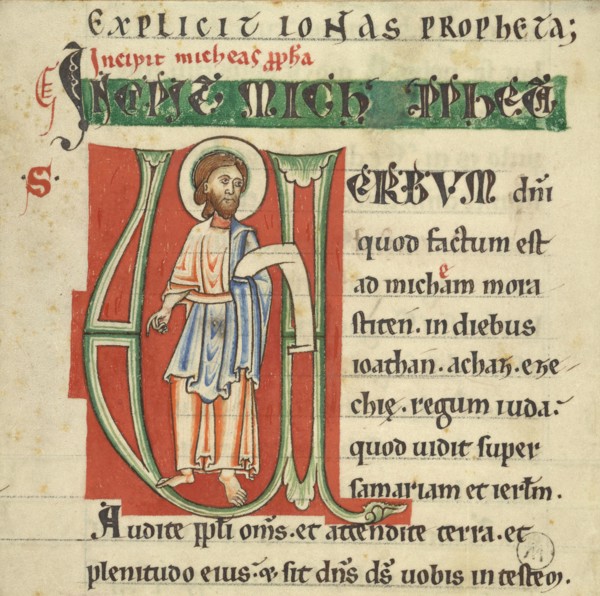 Explicit ionas propheta;
Incipit micheas ꝓph̄a
Incipit Mich ꝓpheta
S
VERBVM dn̄i
quod factum est
ad micheam mora
sticen. in diebus
ioathan. achaz. eze
chię. regum iuda:
quod uidit super
samariam et ierl̄m.
Audite ppl̄i om̄s. et attendite terra. et
plenitudo eius. & sit dn̄s ds̄ uobis in testem.